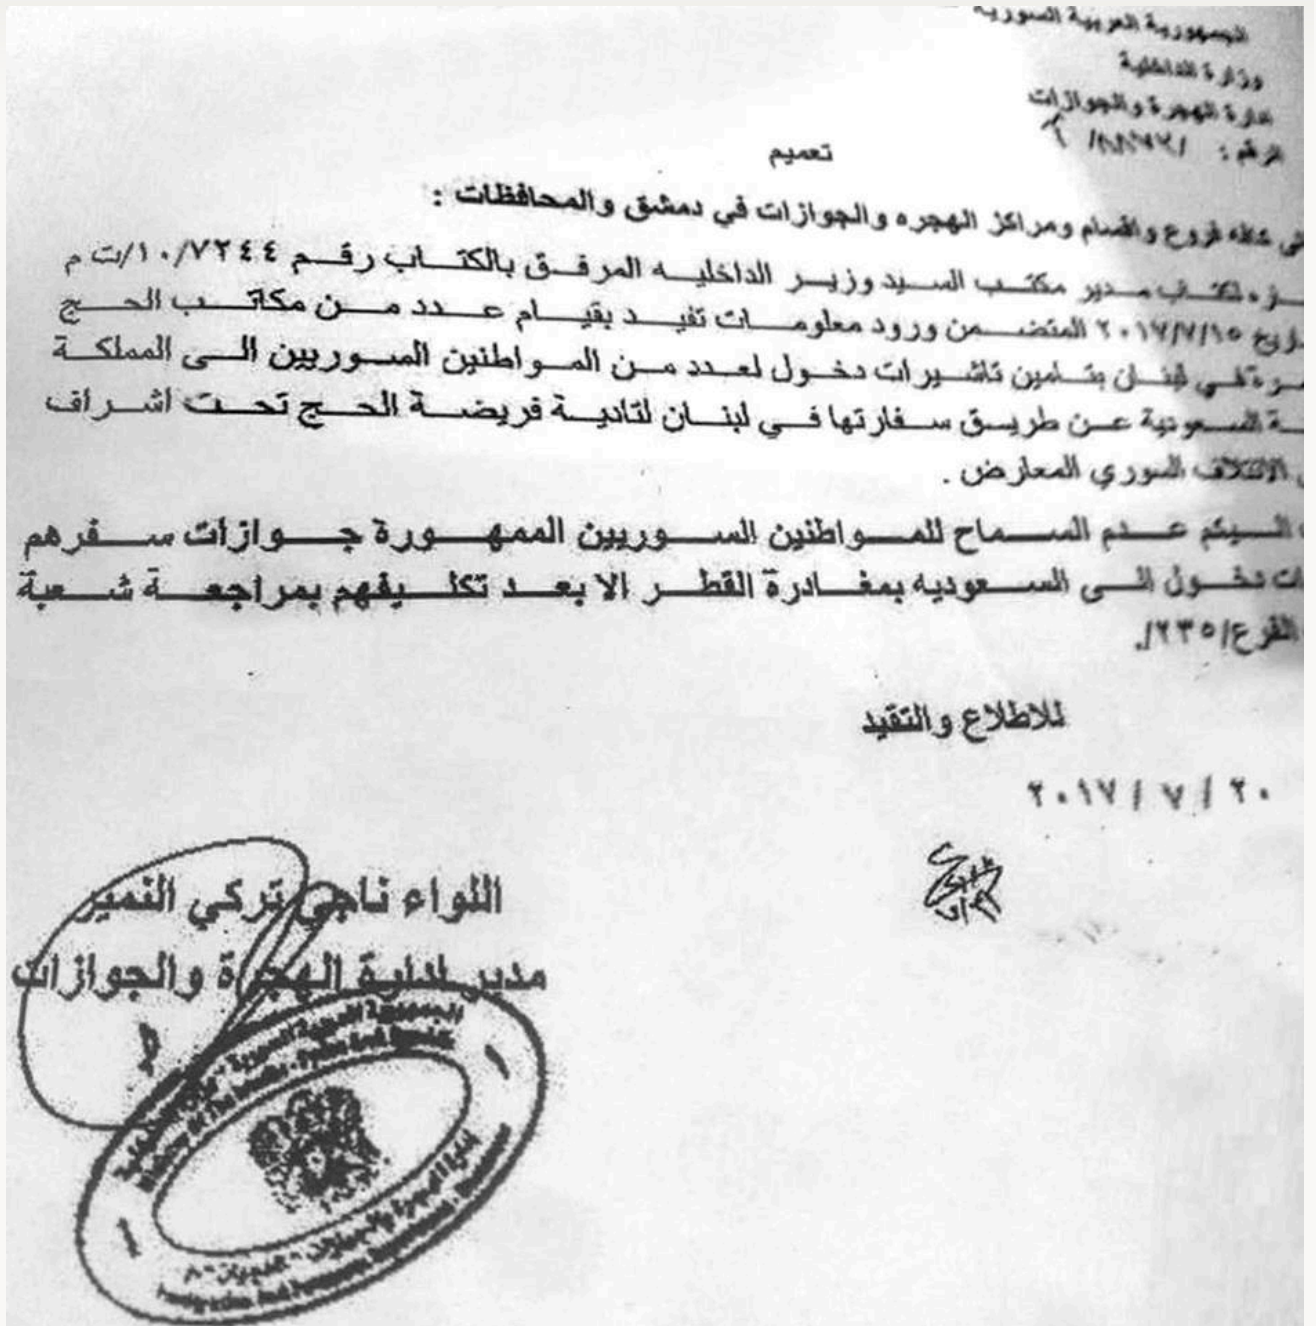 الجمهورية العربية السورية
وزارة الداخلية
ادارة الهجرة والجوازات
تعميم
فروع واقسام ومراكز الهجره والجوازات في دمشق والمحافظات :
مدير مكتب السيد وزير الداخليه المرفق بالكتاب رقم ١٠/٧٢٤٤/ت م
٢٠١٧/٧/١٥ المتضمن ورود معلومات تفيد بقيام عدد من مكاتب الحج
في لبنان بتامين تاشيرات دخول لعدد من المواطنين السوريين الى المملكة
السعودية عن طريق سفارتها في لبنان لتادية فريضة الحج تحت اشراف
الائتلاف السوري المعارض .
عدم السماح للمواطنين السوريين الممهورة جوازات سفرهم
دخول الى السعوديه بمغادرة القطر الا بعد تكليفهم بمراجعة شعبة
الفرع/٢٣٥/.
للاطلاع والتقيد
٢٠ / ٧ / ٢٠١٧
اللواء ناجي تركي النمير
مدير ادارة الهجرة والجوازات